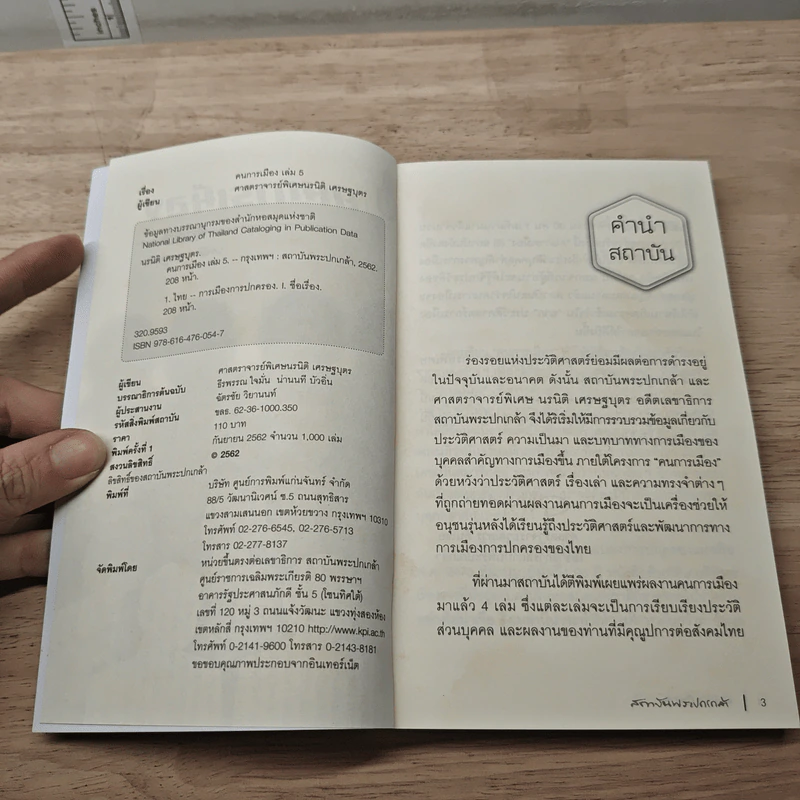 เรื่อง คนการเมือง เล่ม 5
ผู้เขียน ศาสตราจารย์พิเศษนรนิติ เศรษฐบุตร
ข้อมูลทางบรรณานุกรมของสำนักหอสมุดแห่งชาติ
National Library of Thailand Cataloging in Publication Data
นรนิติ เศรษฐบุตร.
คนการเมือง เล่ม 5. -- กรุงเทพฯ : สถาบันพระปกเกล้า, 2562.
208 หน้า.
1. ไทย -- การเมืองการปกครอง. I. ชื่อเรื่อง.
208 หน้า.
320.9593
ISBN 978-616-476-054-7
ผู้เขียน ศาสตราจารย์พิเศษนรนิติ เศรษฐบุตร
บรรณาธิการต้นฉบับ ธีรพรรณ ใจมั่น น่านนที บัวอิ่น
ผู้ประสานงาน ฉัตรชัย วิยานนท์
รหัสสิ่งพิมพ์สถาบัน ขลธ. 62-36-1000.350
ราคา 110 บาท
พิมพ์ครั้งที่ 1 กันยายน 2562 จำนวน 1,000 เล่ม
สงวนลิขสิทธิ์ © 2562
ลิขสิทธิ์ของสถาบันพระปกเกล้า
พิมพ์ที่ บริษัท ศูนย์การพิมพ์แก่นจันทร์ จำกัด
88/5 วัฒนานิเวศน์ ซ.5 ถนนสุทธิสาร
แขวงสามเสนนอก เขตห้วยขวาง กรุงเทพฯ 10310
โทรศัพท์ 02-276-6545, 02-276-5713
โทรสาร 02-277-8137
จัดพิมพ์โดย หน่วยขึ้นตรงต่อเลขาธิการ สถาบันพระปกเกล้า
ศูนย์ราชการเฉลิมพระเกียรติ 80 พรรษาฯ
อาคารรัฐประศาสนภักดี ชั้น 5 (โซนทิศใต้)
เลขที่ 120 หมู่ 3 ถนนแจ้งวัฒนะ แขวงทุ่งสองห้อง
เขตหลักสี่ กรุงเทพฯ 10210 http://www.kpi.ac.th
โทรศัพท์ 0-2141-9600 โทรสาร 0-2143-8181
ขอขอบคุณภาพประกอบจากอินเทอร์เน็ต
คำนำ
สถาบัน
ร่องรอยแห่งประวัติศาสตร์ย่อมมีผลต่อการดำรงอยู่
ในปัจจุบันและอนาคต ดังนั้น สถาบันพระปกเกล้า และ
ศาสตราจารย์พิเศษ นรนิติ เศรษฐบุตร อดีตเลขาธิการ
สถาบันพระปกเกล้า จึงได้ริเริ่มให้มีการรวบรวมข้อมูลเกี่ยวกับ
ประวัติศาสตร์ ความเป็นมา และบทบาททางการเมืองของ
บุคคลสำคัญทางการเมืองขึ้น ภายใต้โครงการ “คนการเมือง”
ด้วยหวังว่าประวัติศาสตร์ เรื่องเล่า และความทรงจำต่างๆ
ที่ถูกถ่ายทอดผ่านผลงานคนการเมืองจะเป็นเครื่องช่วยให้
อนุชนรุ่นหลังได้เรียนรู้ถึงประวัติศาสตร์และพัฒนาการทาง
การเมืองการปกครองของไทย
ที่ผ่านมาสถาบันได้ตีพิมพ์เผยแพร่ผลงานคนการเมือง
มาแล้ว 4 เล่ม ซึ่งแต่ละเล่มจะเป็นการเรียบเรียงประวัติ
ส่วนบุคคล และผลงานของท่านที่มีคุณูปการต่อสังคมไทย
สถาบันพระปกเกล้า | 3